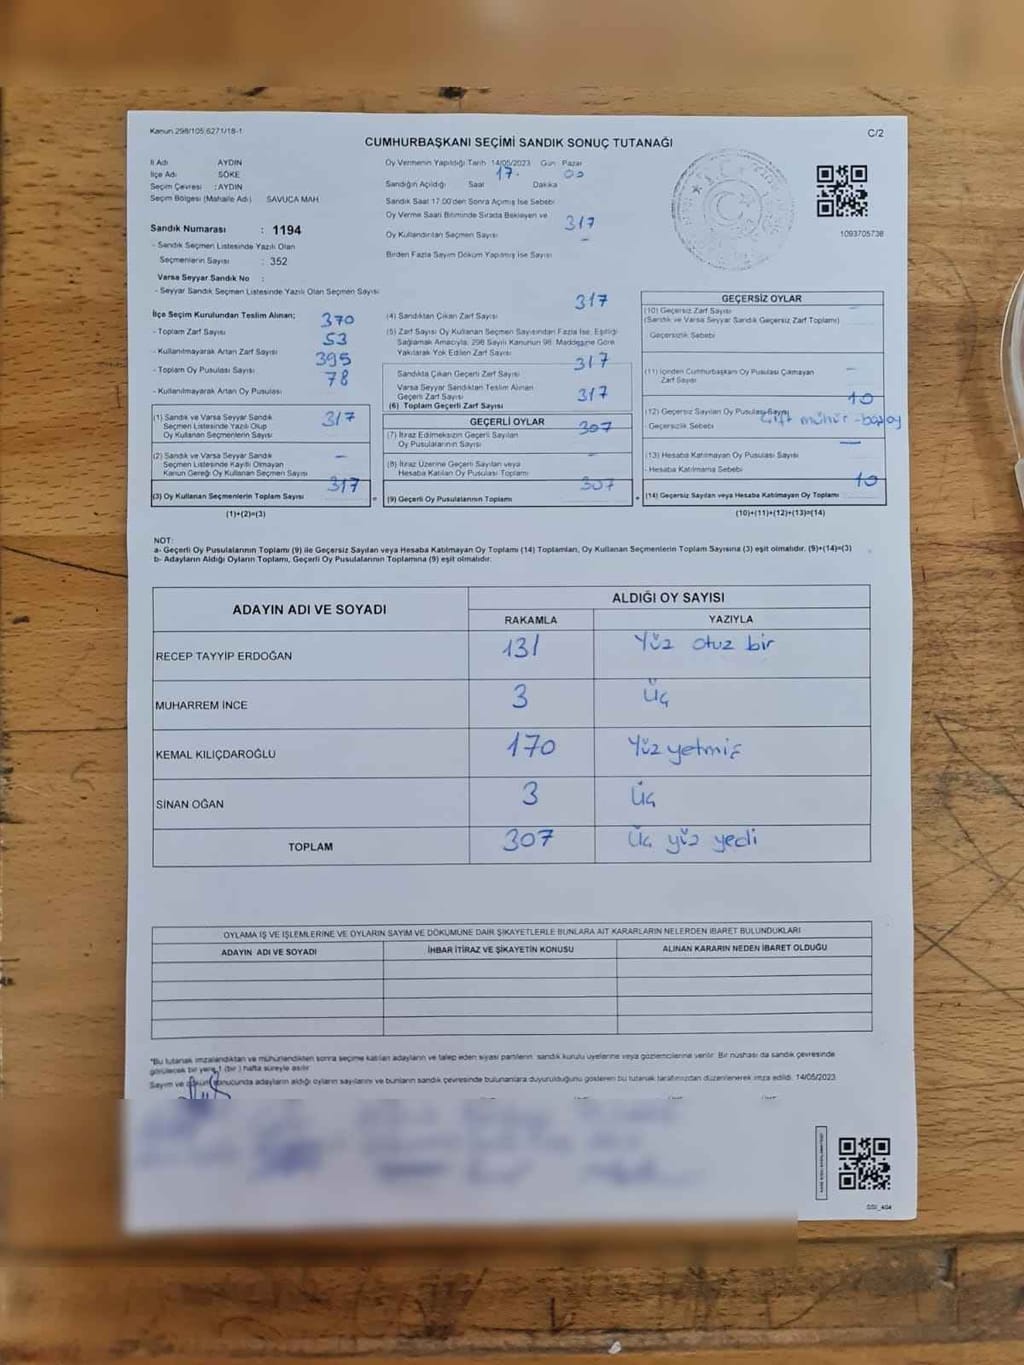 Kanun 298/105,6271/18-1
C/2
CUMHURBAŞKANI SEÇİMİ SANDIK SONUÇ TUTANAĞI
İl Adı AYDIN
İlçe Adı SÖKE
Seçim Çevresi : AYDIN
Seçim Bölgesi (Mahalle Adı) SAVUCA MAH.
Sandık Numarası : 1194
- Sandık Seçmen Listesinde Yazılı Olan
Seçmenlerin Sayısı : 352
Varsa Seyyar Sandık No :
- Seyyar Sandık Seçmen Listesinde Yazılı Olan Seçmen Sayısı
Oy Vermenin Yapıldığı Tarih 14/05/2023 Gün Pazar
Sandığın Açıldığı Saat 17. Dakika 00
Sandık Saat 17.00'den Sonra Açılmış İse Sebebi
Oy Verme Saati Bitiminde Sırada Bekleyen ve
Oy Kullandırılan Seçmen Sayısı 317
Birden Fazla Sayım Döküm Yapılmış İse Sayısı –
1093705738
İlçe Seçim Kurulundan Teslim Alınan;
- Toplam Zarf Sayısı 370
- Kullanılmayarak Artan Zarf Sayısı 53
- Toplam Oy Pusulası Sayısı 395
- Kullanılmayarak Artan Oy Pusulası 78
(1) Sandık ve Varsa Seyyar Sandık
Seçmen Listesinde Yazılı Olup
Oy Kullanan Seçmenlerin Sayısı 317
(2) Sandık ve Varsa Seyyar Sandık
Seçmen Listesinde Kayıtlı Olmayan
Kanun Gereği Oy Kullanan Seçmen Sayısı –
(3) Oy Kullanan Seçmenlerin Toplam Sayısı 317
(1)+(2)=(3)
=
(4) Sandıktan Çıkan Zarf Sayısı 317
(5) Zarf Sayısı Oy Kullanan Seçmen Sayısından Fazla İse, Eşitliği
Sağlamak Amacıyla, 298 Sayılı Kanunun 98. Maddesine Göre
Yakılarak Yok Edilen Zarf Sayısı
Sandıkta Çıkan Geçerli Zarf Sayısı 317
Varsa Seyyar Sandıktan Teslim Alınan
Geçerli Zarf Sayısı
(6) Toplam Geçerli Zarf Sayısı 317
GEÇERLİ OYLAR
(7) İtiraz Edilmeksizin Geçerli Sayılan
Oy Pusulalarının Sayısı 307
(8) İtiraz Üzerine Geçerli Sayılan veya
Hesaba Katılan Oy Pusulası Toplamı
(9) Geçerli Oy Pusulalarının Toplamı 307
+
GEÇERSİZ OYLAR
(10) Geçersiz Zarf Sayısı –
(Sandık ve Varsa Seyyar Sandık Geçersiz Zarf Toplamı)
Geçersizlik Sebebi
(11) İçinden Cumhurbaşkanı Oy Pusulası Çıkmayan
Zarf Sayısı –
(12) Geçersiz Sayılan Oy Pusulası Sayısı 10
- Geçersizlik Sebebi Çift mühür - boş oy
(13) Hesaba Katılmayan Oy Pusulası Sayısı –
- Hesaba Katılmama Sebebi
(14) Geçersiz Sayılan veya Hesaba Katılmayan Oy Toplamı 10
(10)+(11)+(12)+(13)=(14)
NOT:
a- Geçerli Oy Pusulalarının Toplamı (9) ile Geçersiz Sayılan veya Hesaba Katılmayan Oy Toplamı (14) Toplamları, Oy Kullanan Seçmenlerin Toplam Sayısına (3) eşit olmalıdır. (9)+(14)=(3)
b- Adayların Aldığı Oyların Toplamı, Geçerli Oy Pusulalarının Toplamına (9) eşit olmalıdır.
ADAYIN ADI VE SOYADI ALDIĞI OY SAYISI
RAKAMLA YAZIYLA
RECEP TAYYİP ERDOĞAN 131 Yüz otuz bir
MUHARREM İNCE 3 Üç
KEMAL KILIÇDAROĞLU 170 Yüz yetmiş
SİNAN OĞAN 3 Üç
TOPLAM 307 Üç yüz yedi
OYLAMA İŞ VE İŞLEMLERİNE VE OYLARIN SAYIM VE DÖKÜMÜNE DAİR ŞİKAYETLERLE BUNLARA AİT KARARLARIN NELERDEN İBARET BULUNDUKLARI
ADAYIN ADI VE SOYADI İHBAR İTİRAZ VE ŞİKAYETİN KONUSU ALINAN KARARIN NEDEN İBARET OLDUĞU
*Bu tutanak imzalandıktan ve mühürlendikten sonra seçime katılan adayların ve talep eden siyasi partilerin sandık kurulu üyelerine veya gözlemcilerine verilir. Bir nüshası da sandık çevresinde
görülecek bir yere 1 (bir) hafta süreyle asılır.
Sayım ve döküm sonucunda adayların aldığı oyların sayılarını ve bunların sandık çevresinde bulunanlara duyurulduğunu gösteren bu tutanak tarafımızdan düzenlenerek imza edildi. 14/05/2023